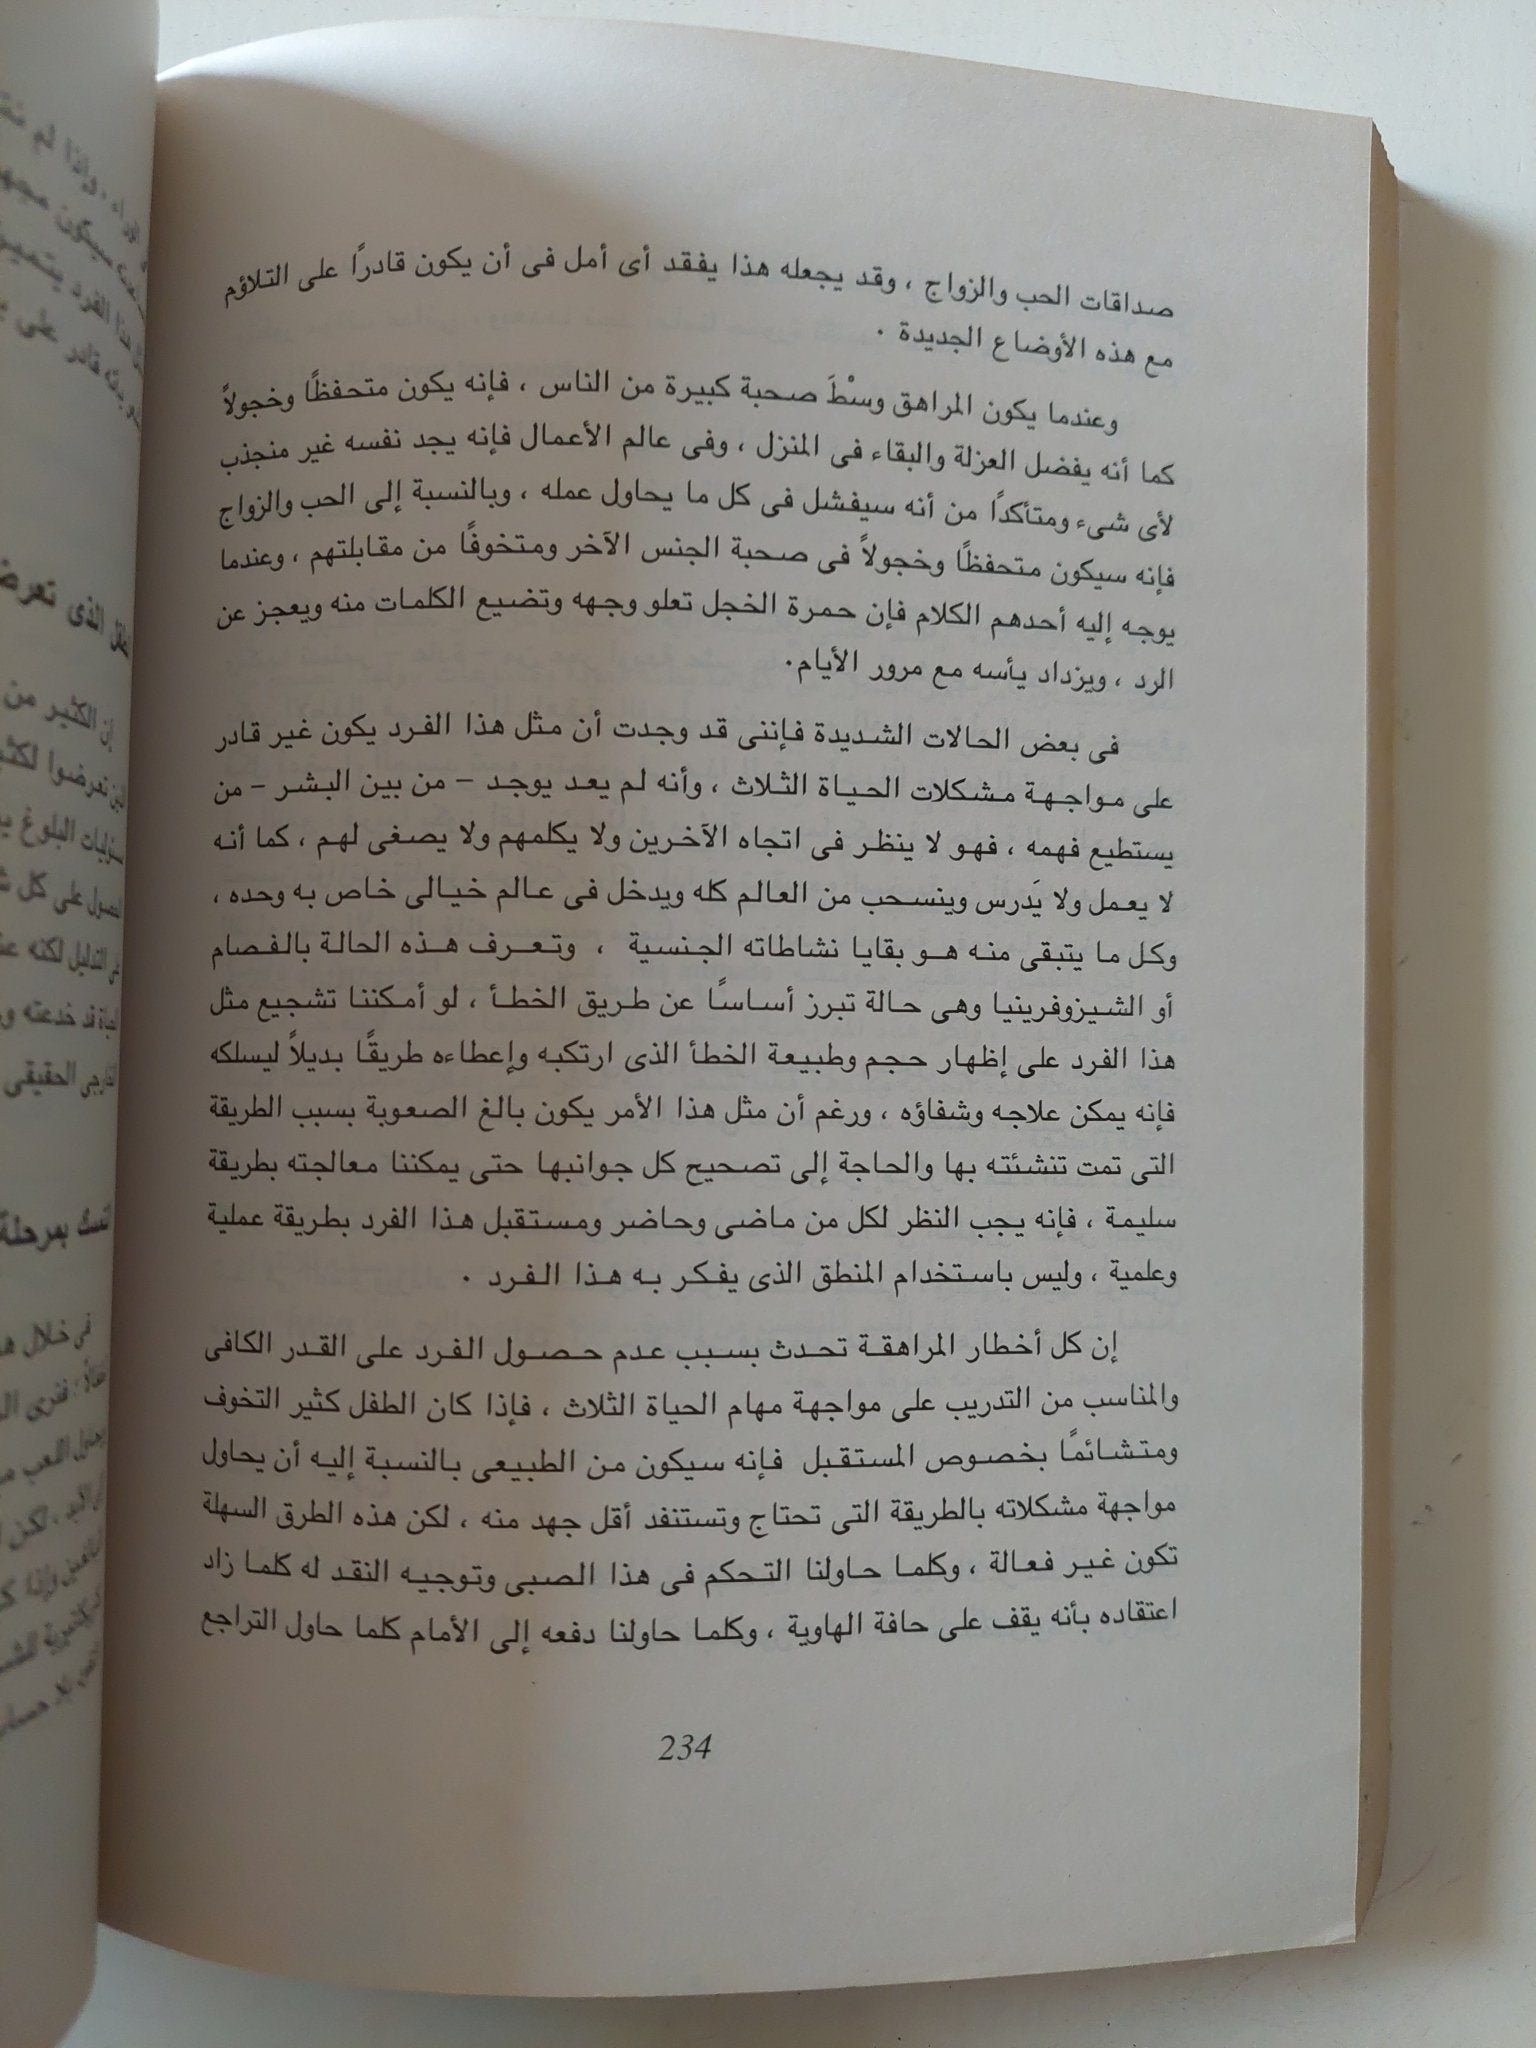 صداقات الحب والزواج ، وقد يجعله هذا يفقد أى أمل فى أن يكون قادرًا على التلاؤم
مع هذه الأوضاع الجديدة .
وعندما يكون المراهق وسْطَ صحبة كبيرة من الناس ، فإنه يكون متحفظًا وخجولاً
كما أنه يفضل العزلة والبقاء فى المنزل ، وفى عالم الأعمال فإنه يجد نفسه غير منجذب
لأى شىء ومتأكدًا من أنه سيفشل فى كل ما يحاول عمله ، وبالنسبة إلى الحب والزواج
فإنه سيكون متحفظًا وخجولاً فى صحبة الجنس الآخر ومتخوفًا من مقابلتهم ، وعندما
يوجه إليه أحدهم الكلام فإن حمرة الخجل تعلو وجهه وتضيع الكلمات منه ويعجز عن
الرد ، ويزداد يأسه مع مرور الأيام.
فى بعض الحالات الشديدة فإننى قد وجدت أن مثل هذا الفرد يكون غير قادر
على مواجهة مشكلات الحياة الثلاث ، وأنه لم يعد يوجد – من بين البشر – من
يستطيع فهمه ، فهو لا ينظر فى اتجاه الآخرين ولا يكلمهم ولا يصغى لهم ، كما أنه
لا يعمل ولا يَدرس وينسحب من العالم كله ويدخل فى عالم خيالى خاص به وحده ،
وكل ما يتبقى منه هو بقايا نشاطاته الجنسية ، وتعرف هذه الحالة بالفصام
أو الشيزوفرينيا وهى حالة تبرز أساسًا عن طريق الخطأ ، لو أمكننا تشجيع مثل
هذا الفرد على إظهار حجم وطبيعة الخطأ الذى ارتكبه وإعطاءه طريقًا بديلاً ليسلكه
فإنه يمكن علاجه وشفاؤه ، ورغم أن مثل هذا الأمر يكون بالغ الصعوبة بسبب الطريقة
التى تمت تنشئته بها والحاجة إلى تصحيح كل جوانبها حتى يمكننا معالجته بطريقة
سليمة ، فإنه يجب النظر لكل من ماضى وحاضر ومستقبل هذا الفرد بطريقة عملية
وعلمية ، وليس باستخدام المنطق الذى يفكر به هذا الفرد .
إن كل أخطار المراهقة تحدث بسبب عدم حصول الفرد على القدر الكافى
والمناسب من التدريب على مواجهة مهام الحياة الثلاث ، فإذا كان الطفل كثير التخوف
ومتشائمًا بخصوص المستقبل فإنه سيكون من الطبيعى بالنسبة إليه أن يحاول
مواجهة مشكلاته بالطريقة التى تحتاج وتستنفد أقل جهد منه ، لكن هذه الطرق السهلة
تكون غير فعالة ، وكلما حاولنا التحكم فى هذا الصبى وتوجيه النقد له كلما زاد
اعتقاده بأنه يقف على حافة الهاوية ، وكلما حاولنا دفعه إلى الأمام كلما حاول التراجع
234